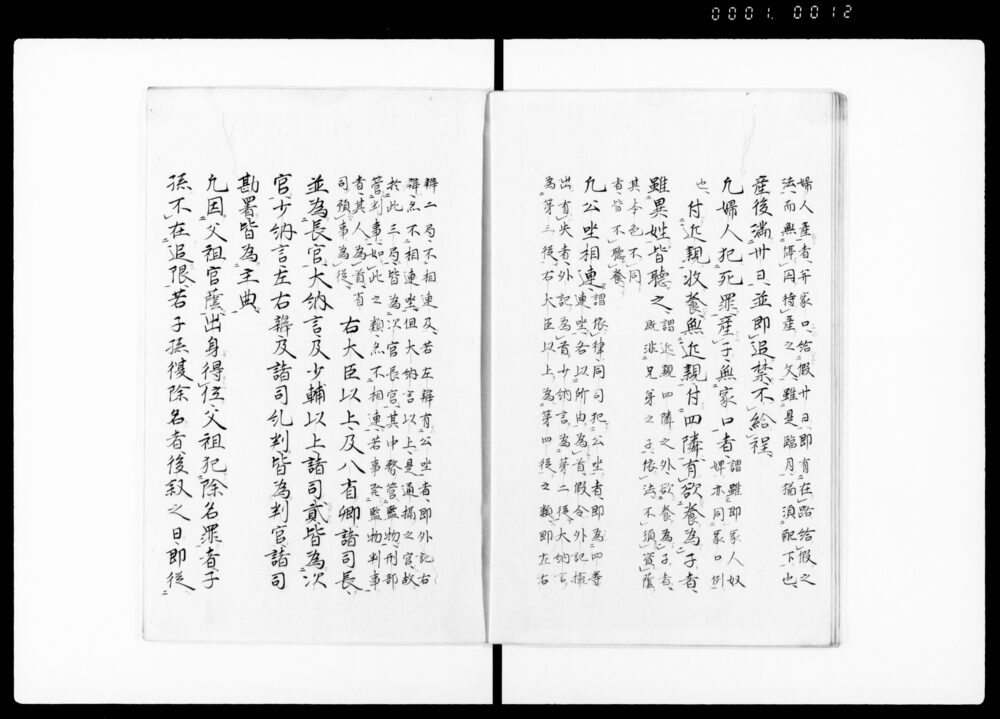 0001.0012
婦人産者、并家口給假廿日、即有在路給假之
法、而無停囚待産之文、雖是臨月、猶須配下也、
産後滿卅日、並即追禁、不給程
凡婦人犯死罪、産子無家口者、謂雖即家人奴
婢亦同家口例
也、付近親收養、無近親付四隣、有欲養為子者、
雖異姓、皆聽之、謂近親四隣之外欲養為子者、
既非兄弟之子、依法不須資蔭
其本色不同
者、皆不聽養
凡公坐相連、謂依律、同司犯公坐者、即為四等
連坐、各以所由為首、假令外記檢
出有失者、外記為首、少納言為第二從、大納言
為第三從、右大臣以上、為第四從之類、即左右
辨二局、不相連及、若左辨有公坐者、即外記右
辨、亦不相連坐、但大納言以上、是通攝之官、故
於此三局、皆為次官長官、其中務管監物、刑部
管判事、如此之類、亦不相連、若事發監物判事
者、其人為首、有
司預事為從、右大臣以上、及八省卿諸司長、
並為長官、大納言及少輔以上、諸司貳、皆為次
官、少納言左右辨及諸司糺判、皆為判官、諸司
勘署皆為主典
凡因父祖官蔭出身得位、父祖犯除名罪者、子
孫不在追限、若子孫復除名者、後叙之日、即從